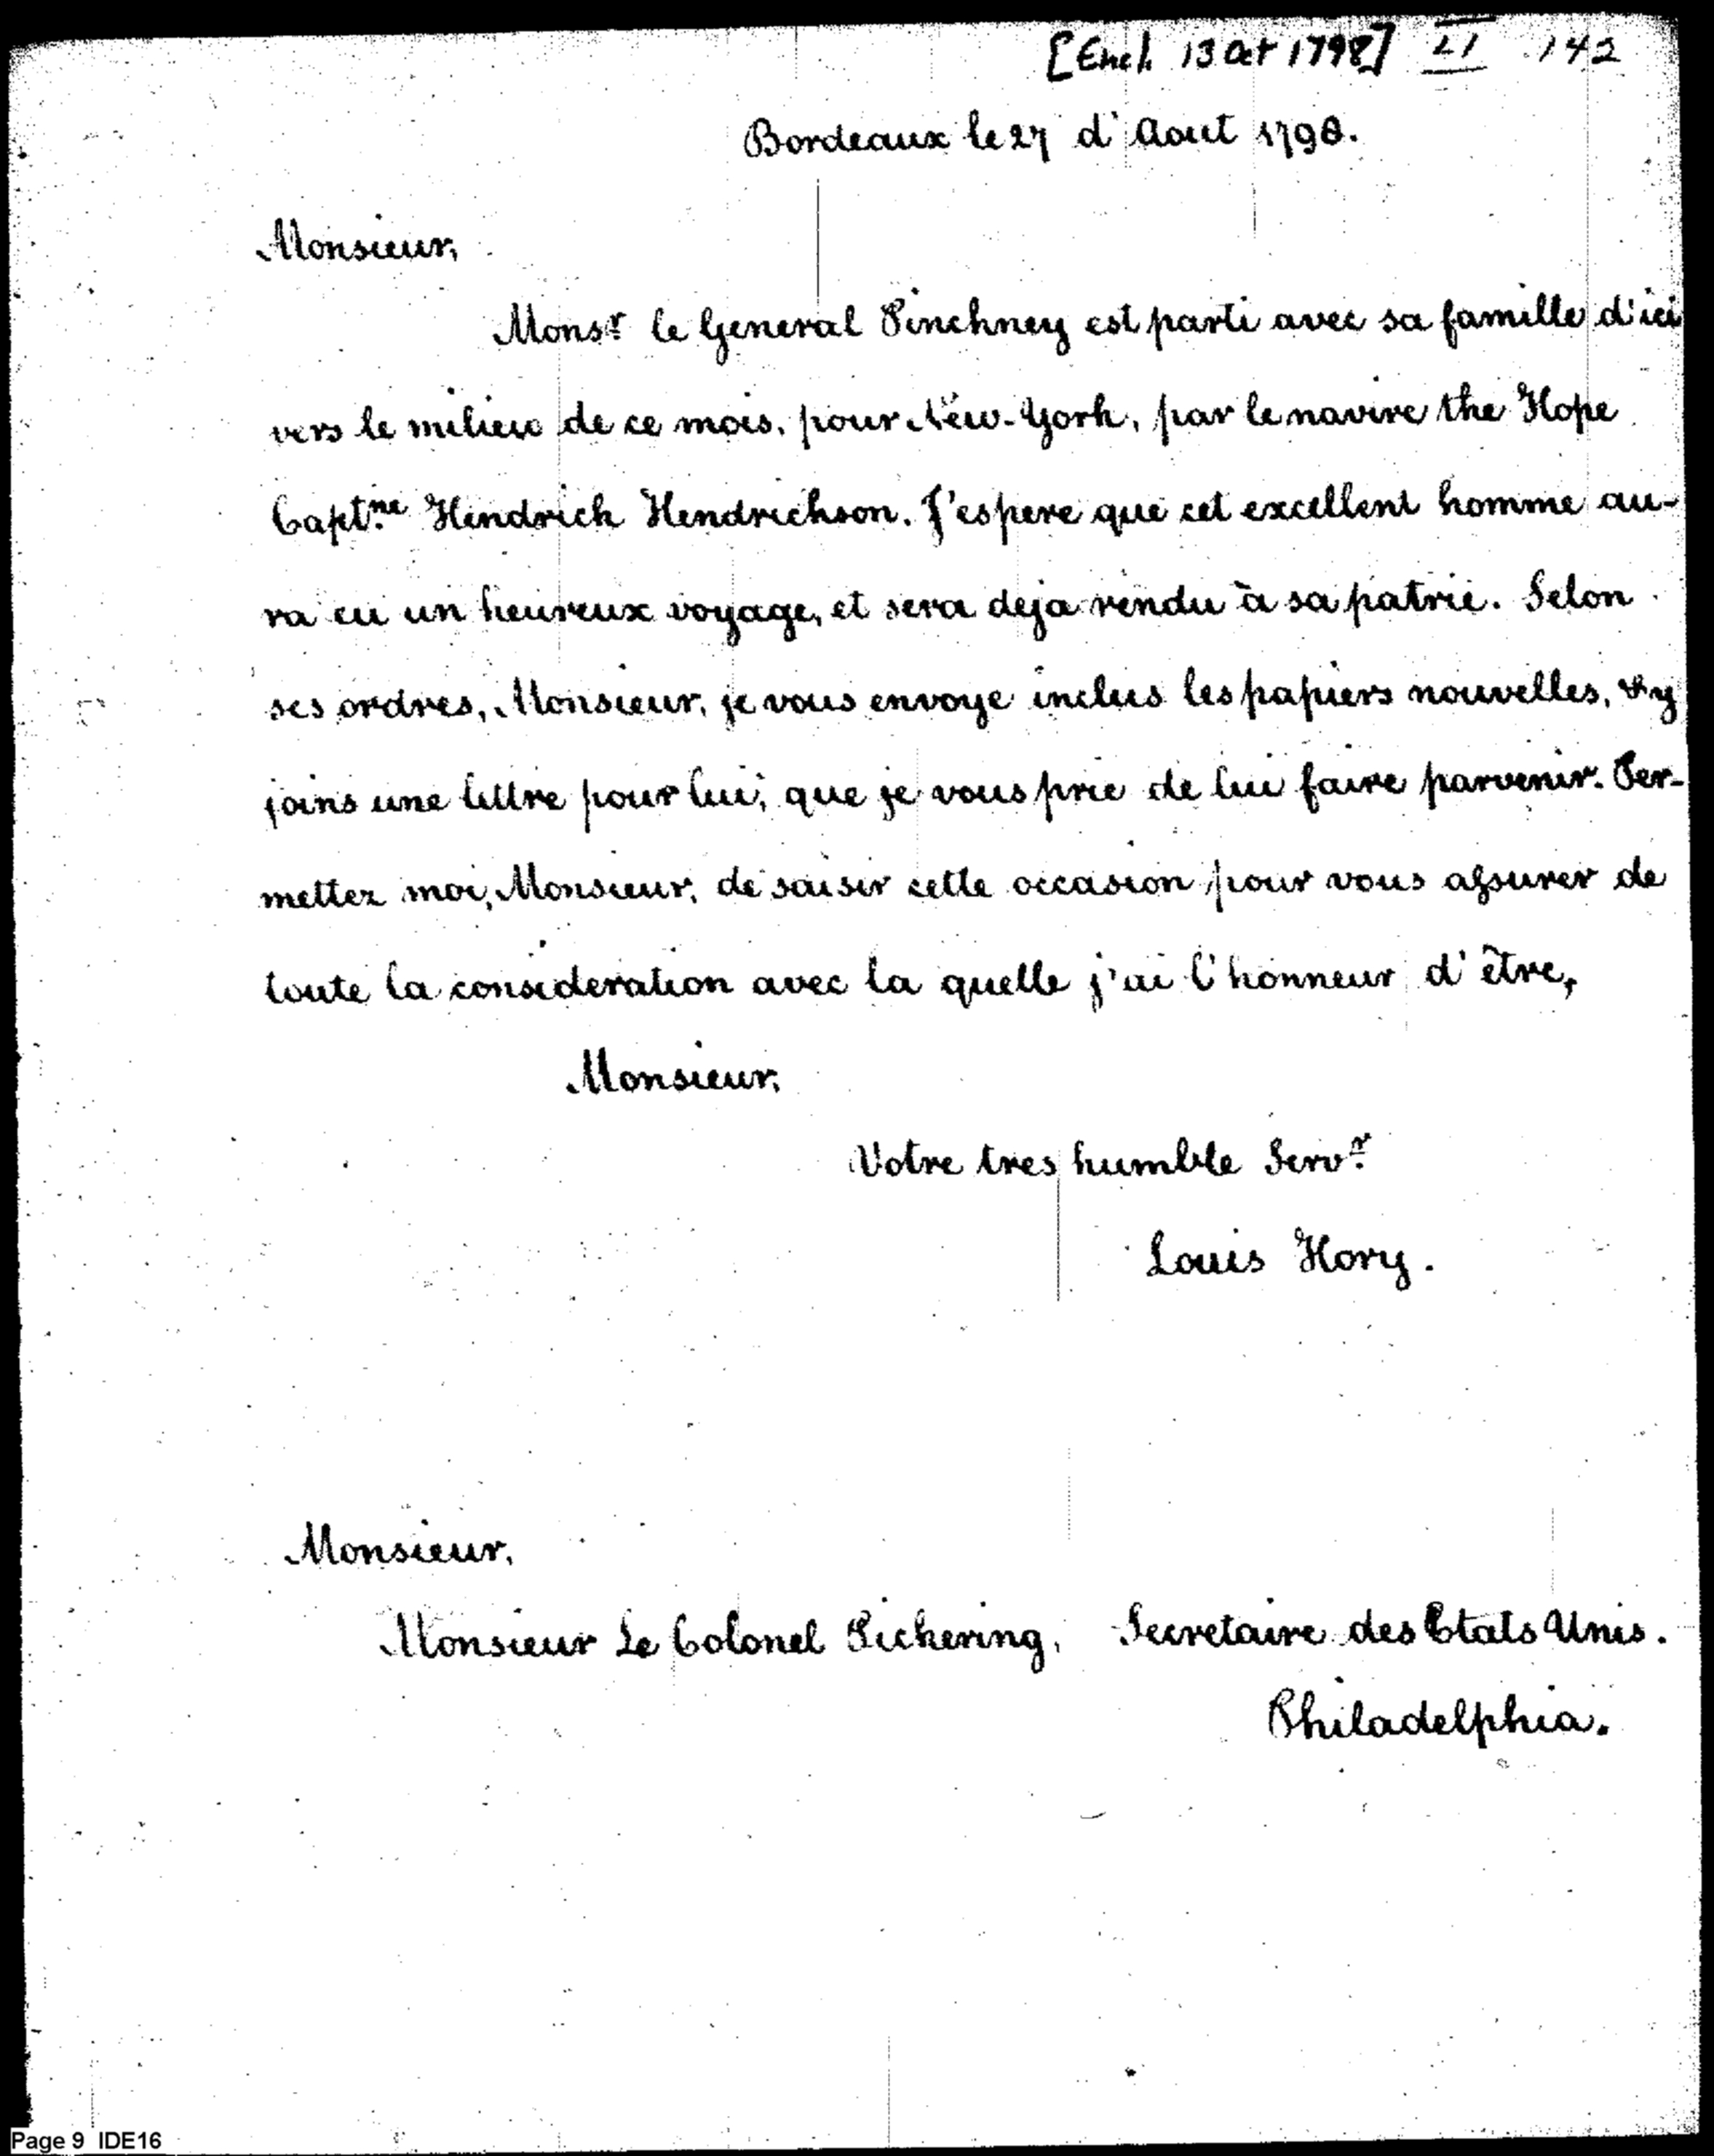 [Encl. 13 Oct 1798] 21 142
Bordeaux le 27 d'Aout 1798.
Monsieur,
Monsr. le General Pinchney est parti avec sa famille d'ici
vers le milieu de ce mois, pour New-York, par le navire the Hope
Captne. Hendrick Hendrichson. J'espere que cet excellent homme au-
ra eu un heureux voyage, et sera deja rendu à sa patrie. Selon
ses ordres, Monsieur, je vous envoye inclus les papiers nouvelles, & y
joins une lettre pour lui, que je vous prie de lui faire parvenir. Per-
mettez moi, Monsieur, de saisir cette occasion pour vous assurer de
toute la consideration avec la quelle j'ai l'honneur d'être,
Monsieur,
Votre tres humble Servr.
Louis Hory.
Monsieur,
Monsieur Le Colonel Pickering, Secretaire des Etats Unis.
Philadelphia.
Page 9 IDE16